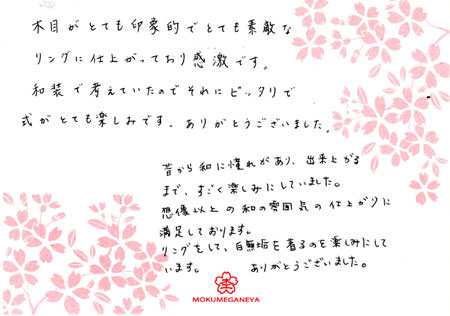 木目がとても印象的でとても素敵な
リングに仕上がっており感激です。
和装で考えていたのでそれにピッタリで
式がとても楽しみです。ありがとうございました。
昔から和に憧れがあり、出来上がる
まで、すごく楽しみにしていました。
想像以上の和の雰囲気の仕上がりに
満足しております。
リングをして、白無垢を着るのを楽しみにして
います。 ありがとうございました。
MOKUMEGANEYA